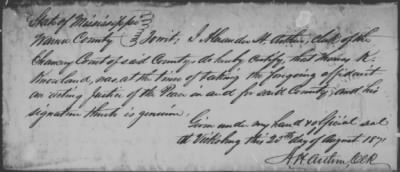 State of Mississippi
Warren County } Towit; I Alexander H. Arthur, clerk of the
Chancery Court of said County, do hereby Certify, that Thomas K.
was, at the time of taking the foregoing affidavit
an acting Justice of the Peace in and for said County, and his
signature thereto is genuine.
Given under my hand & official seal
at Vicksburg this 30th day of August 187
A.H. Arthur, Clk